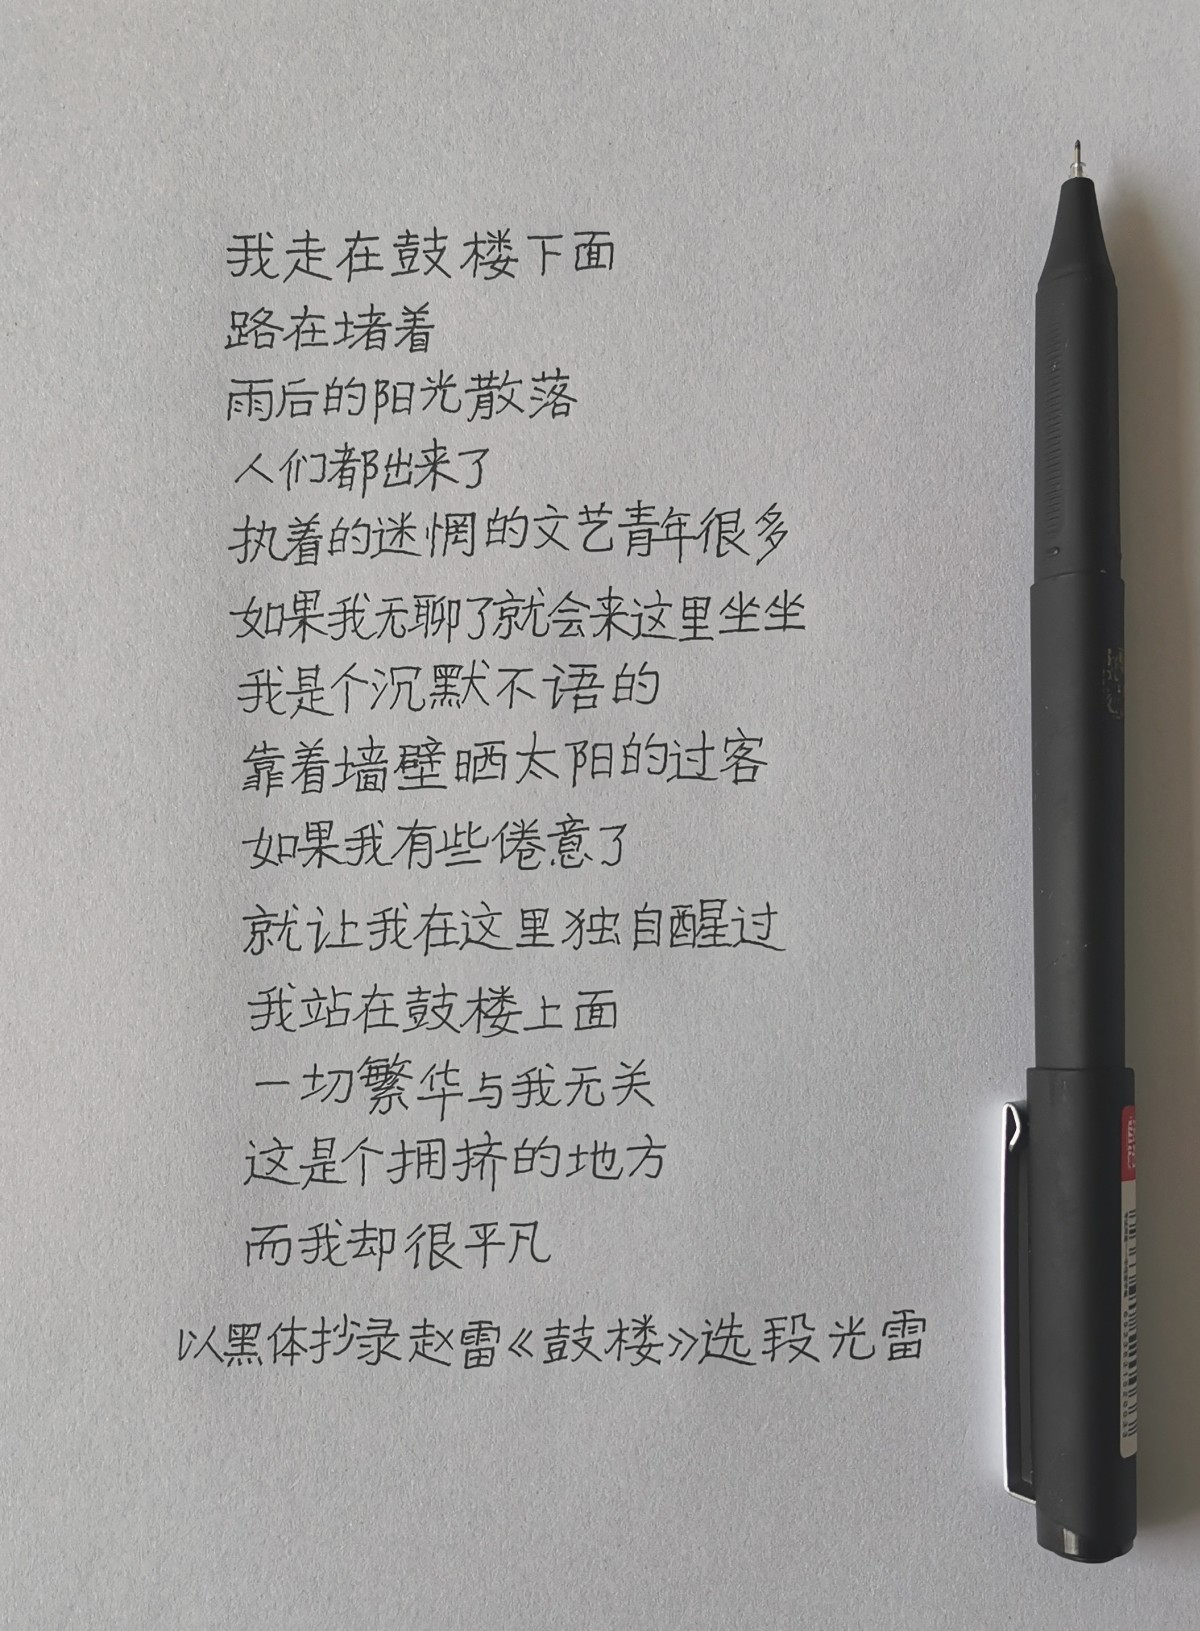 我走在鼓楼下面
路在堵着
雨后的阳光散落
人们都出来了
执着的迷惘的文艺青年很多
如果我无聊了就会来这里坐坐
我是个沉默不语的
靠着墙壁晒太阳的过客
如果我有些倦意了
就让我在这里独自醒过
我站在鼓楼上面
一切繁华与我无关
这是个拥挤的地方
而我却很平凡
以黑体抄录赵雷《鼓楼》选段光雷